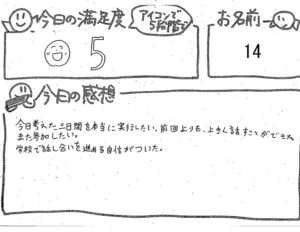 今日の満足度
アイコンで
5段階で
お名前
5
14
今日の感想
今日考えた三日間を本当に実行したい。前回よりも、上手く話すことができた。
また参加したい。
学校で話し合いを進める自信がついた。